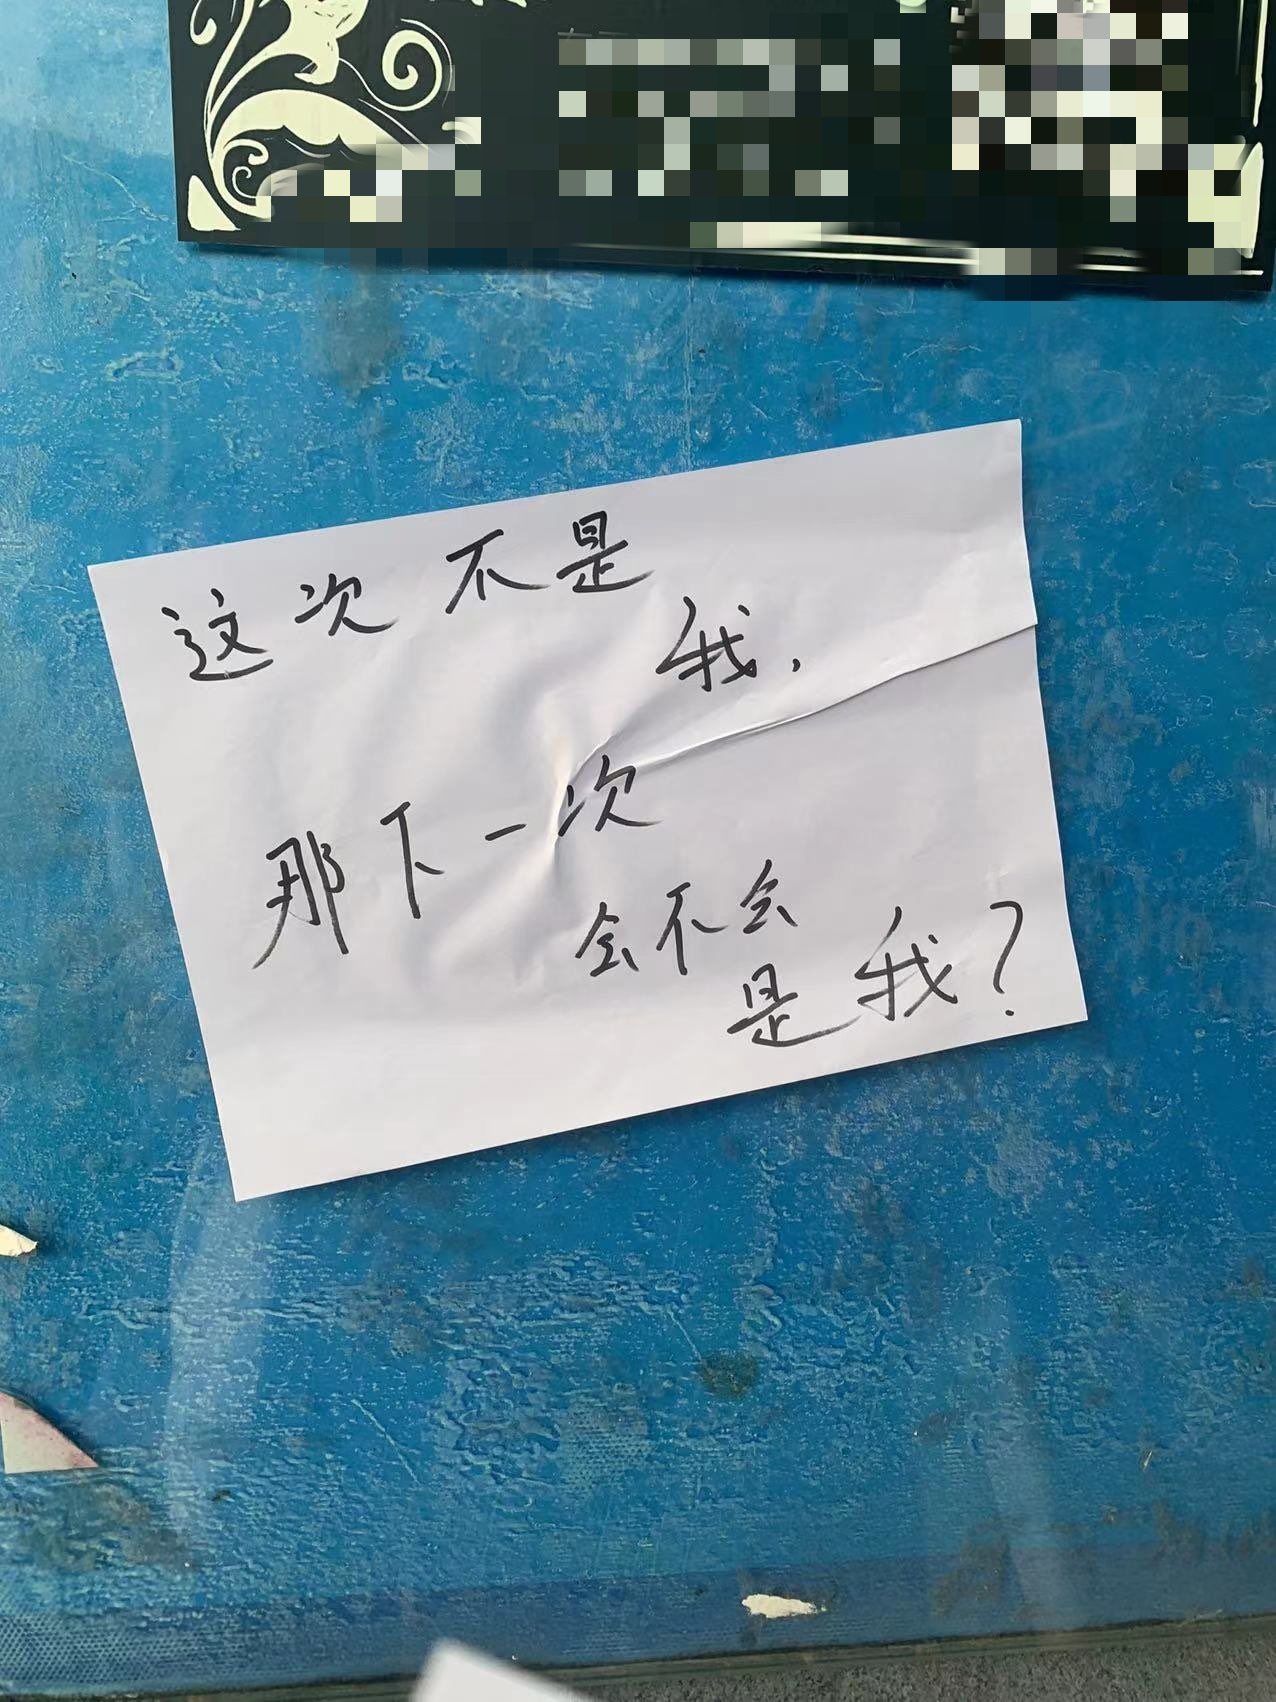 这次不是
我,
那下一次
会不会
是我?